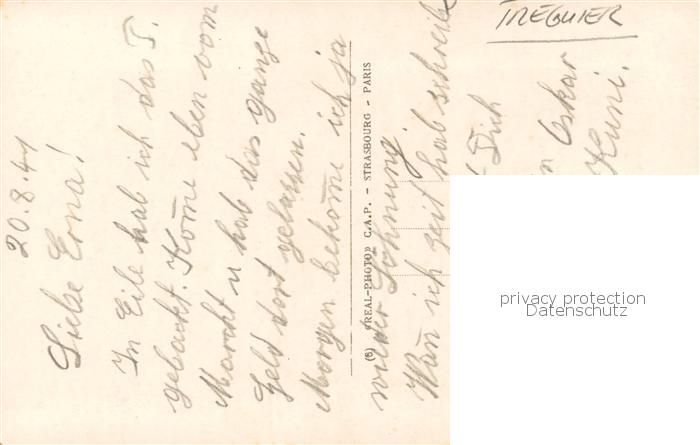 TREGUIER
20.8.41
Liebe Erna!
In Eile hab ich das P.
gepackt. Kom̄e eben vom
Marcht u hab das ganze
Geld dort gelassen.
Morgen bekom̄e ich ja
wieder Löhnung.
Wan̄ ich zeit hab schreibe
Dich
Oskar
Heini.
(8) «REAL-PHOTO» C.A.P. - STRASBOURG - PARIS
privacy protection
Datenschutz